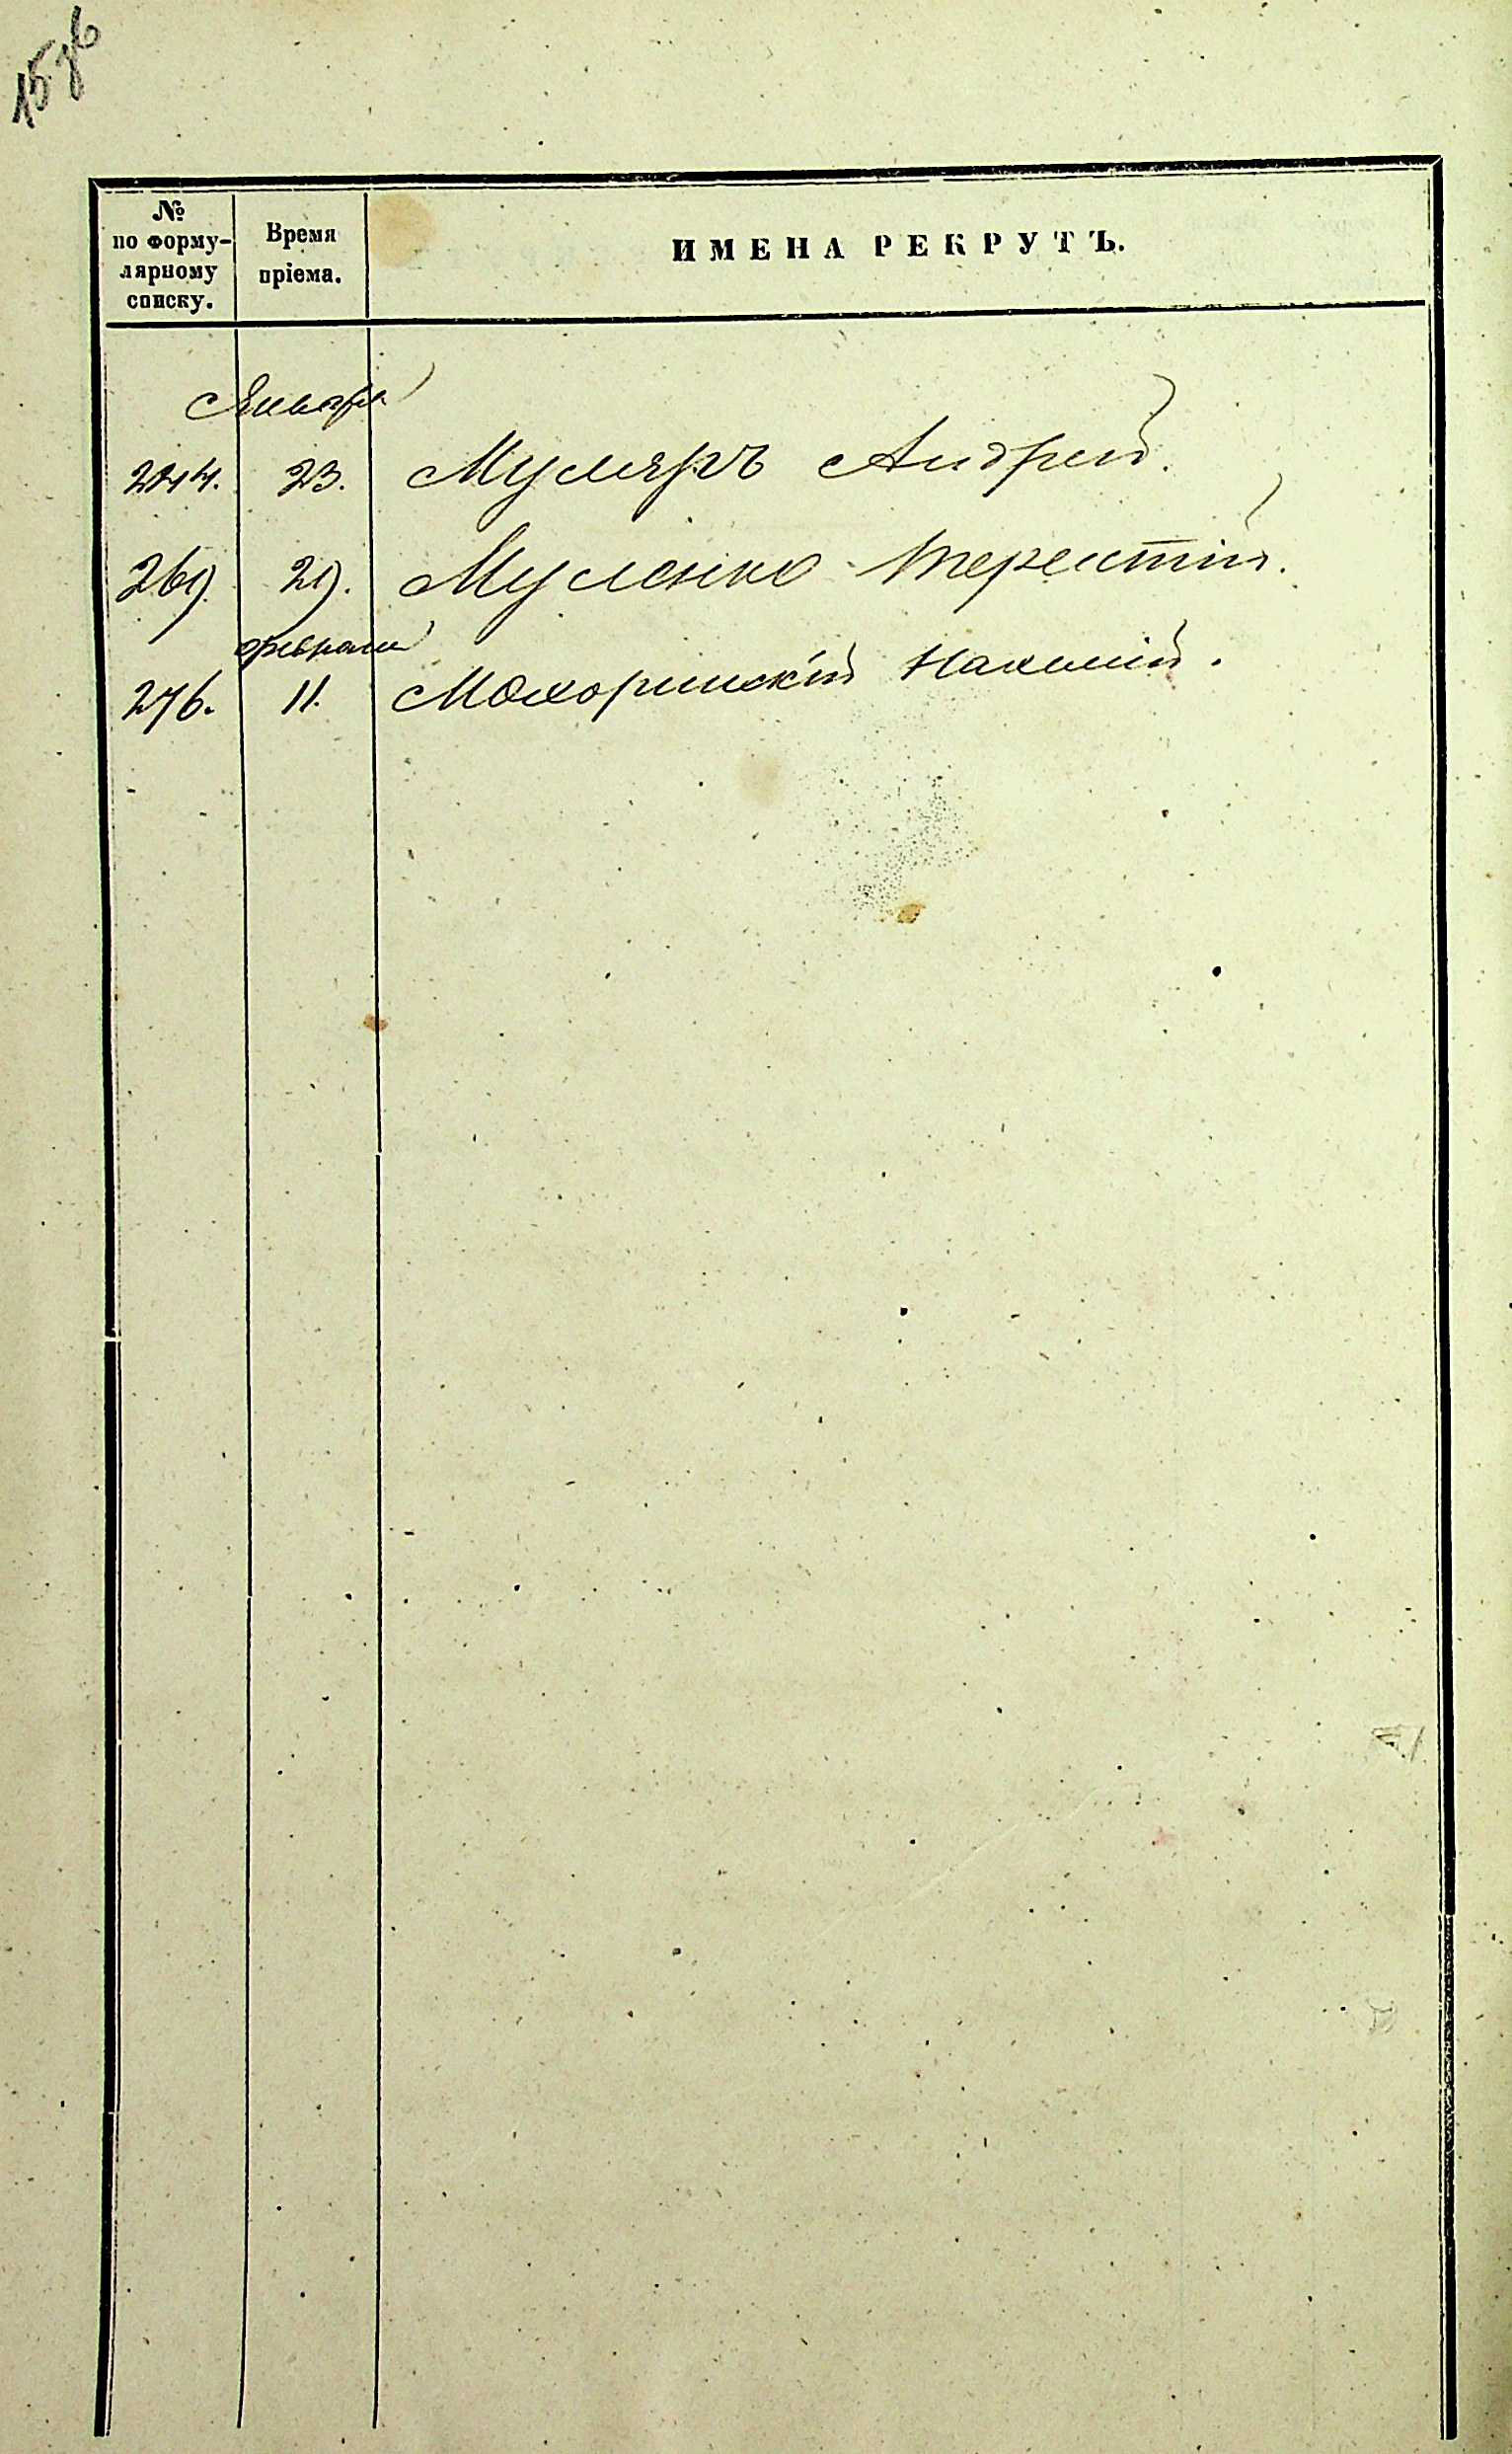 № по форму-
лярному
списку.
Время
пріема.
ИМЕНА РЕКРУТЪ.
Января
244. 23. Муляръ Андрей.
269. 29. Мусленко Терентій.
Февраля
276. 11. Махоринскій